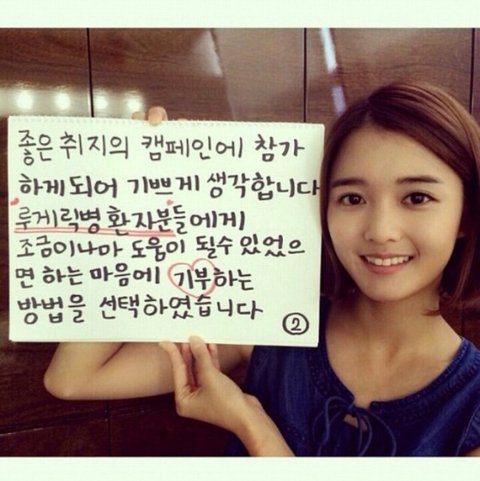 좋은 취지의 캠페인에 참가
하게되어 기쁘게 생각합니다
루게릭병 환자분들에게
조금이나마 도움이 될수 있었으
면 하는 마음에 기부하는
방법을 선택하였습니다
2